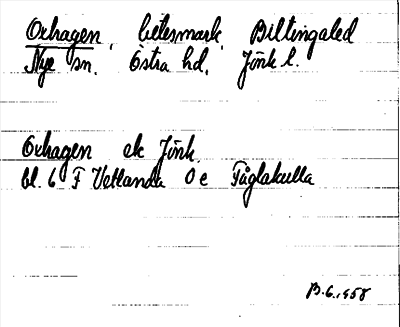 Oxhagen, betesmark, Biltingaled
Nye sn. Östra hd. Jönk l.
Oxhagen ek Jönk.
bl. 6 F Vetlanda O e Fåglakulla
B.6.1958